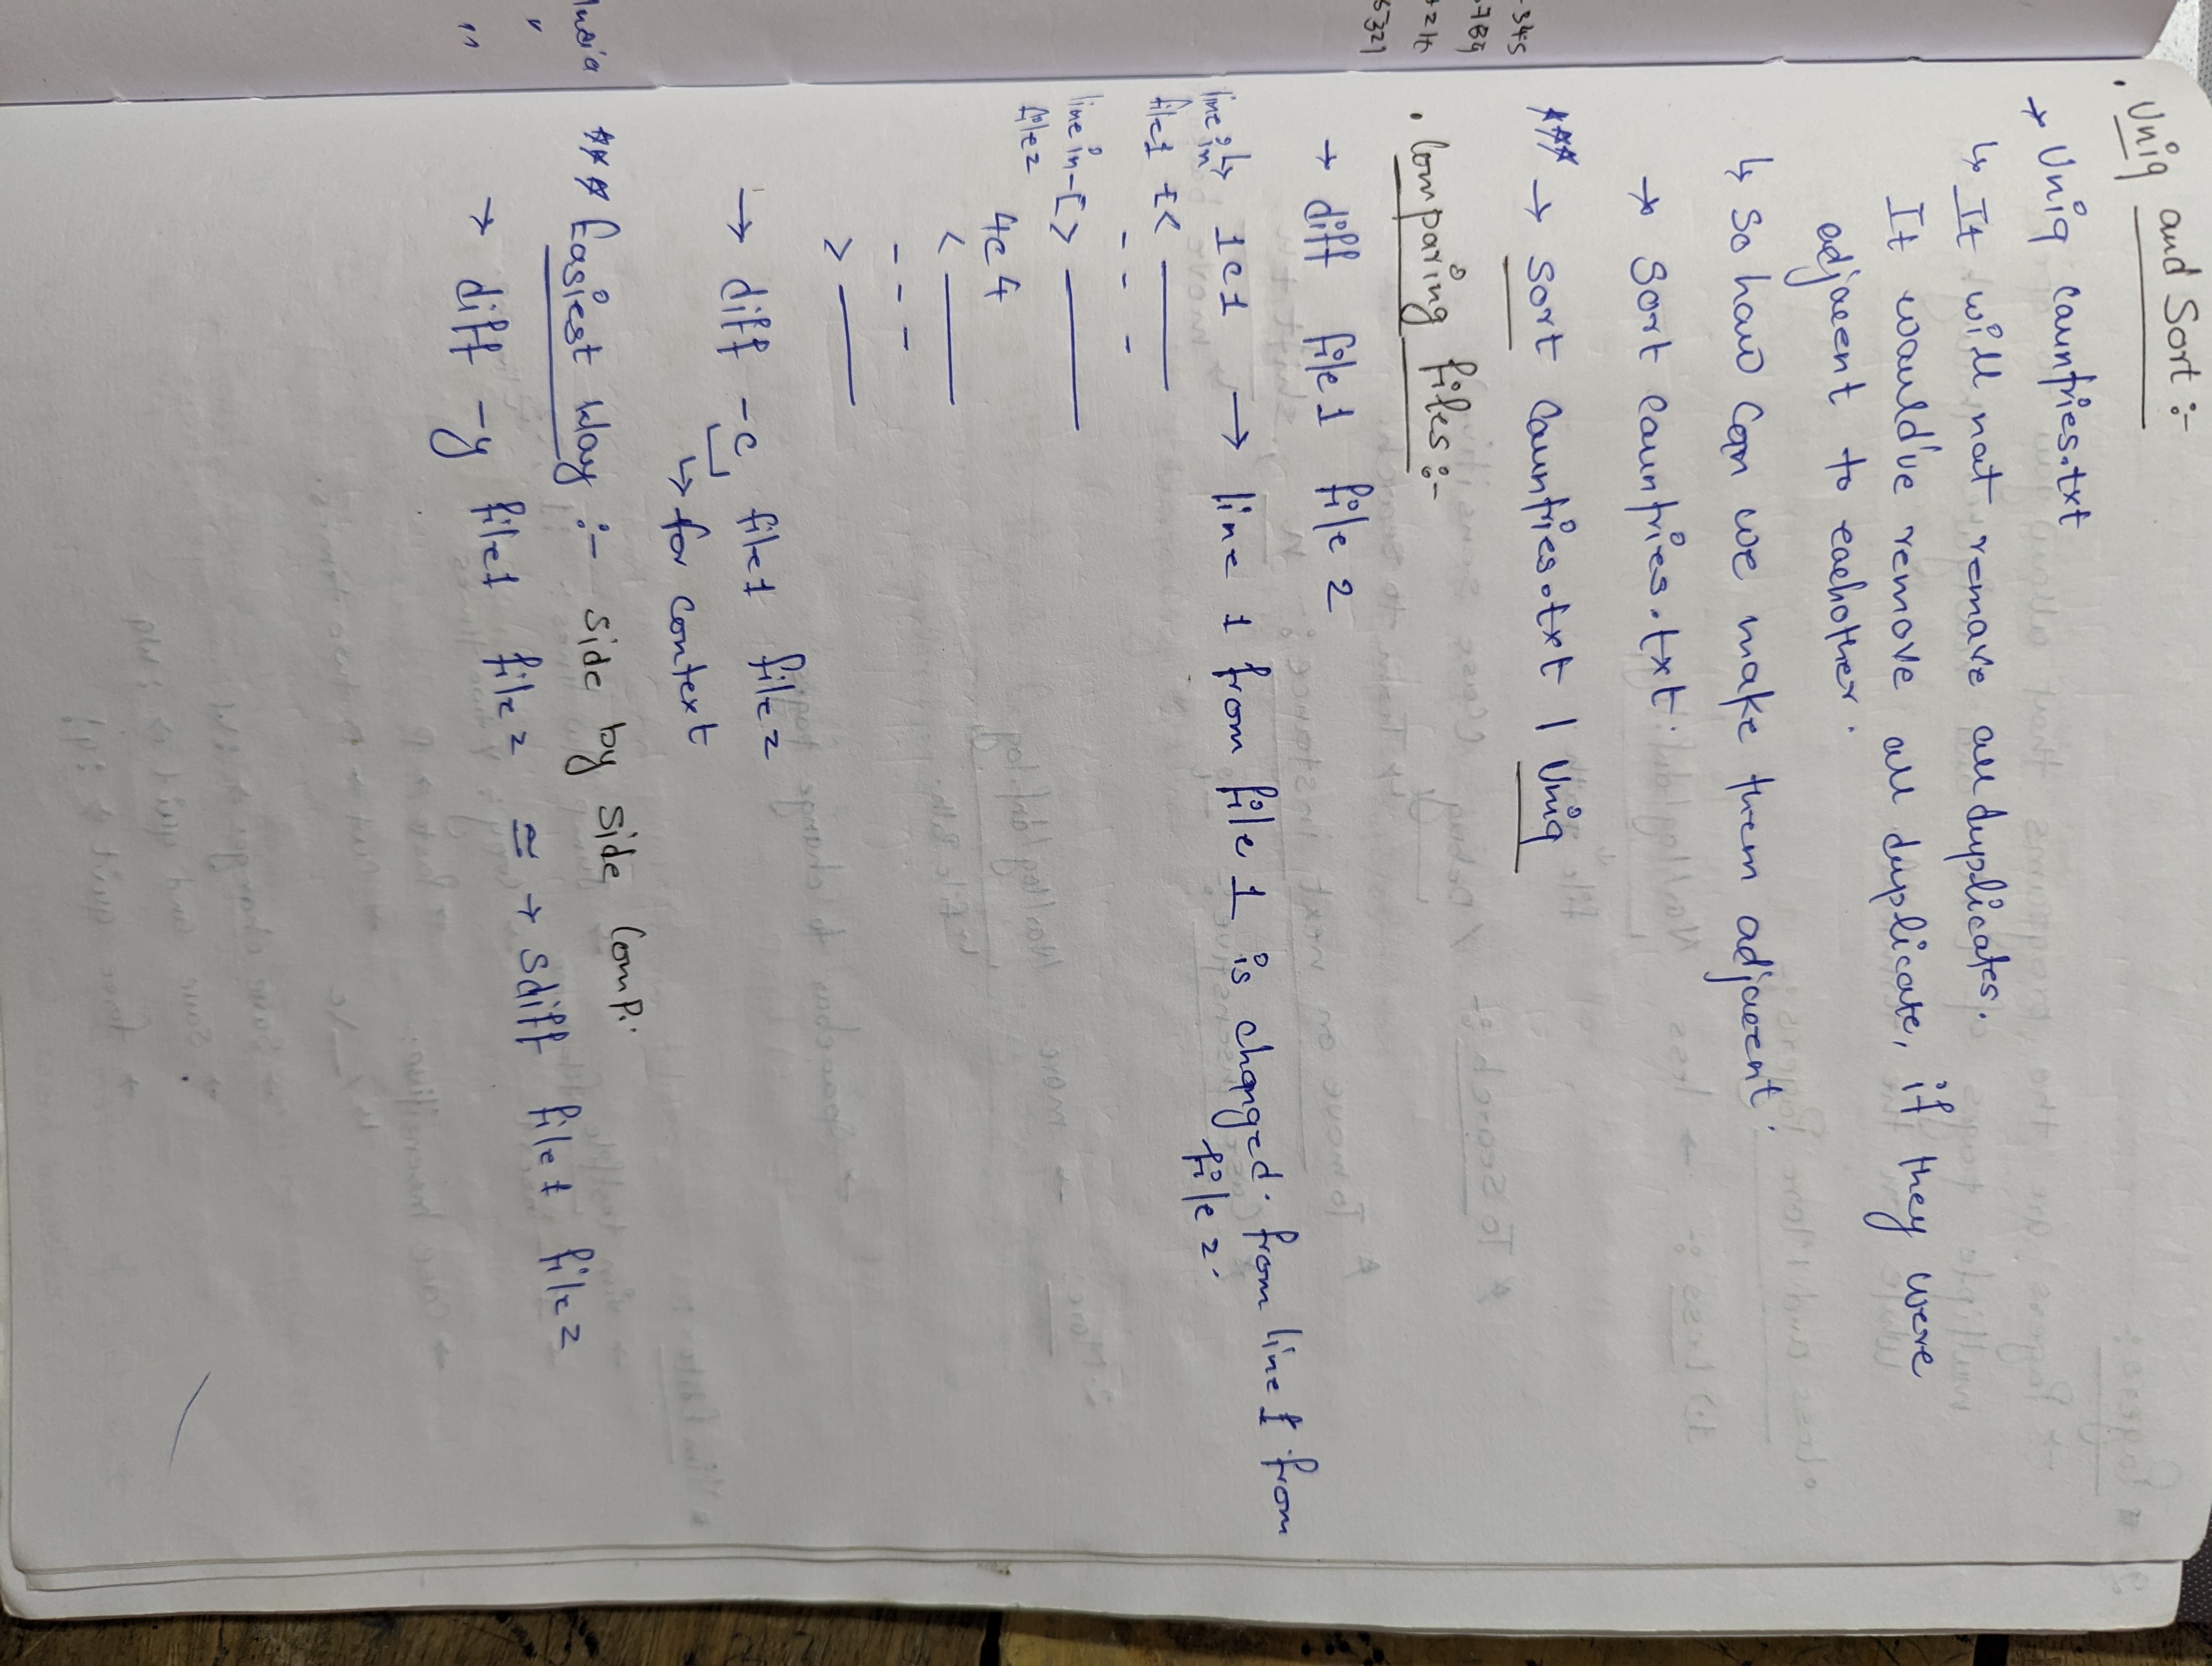 . Uniq and Sort :-
→ Uniq countries.txt
↳ It will not remove all duplicates.
It would've remove all duplicate, if they were
adjacent to eachother.
↳ So how can we make them adjacent.
→ Sort countries.txt
*** → Sort countries.txt | Uniq
. Comparing files :-
→ diff file1 file 2
line in file1 ↳ 1c1 → line 1 from file 1 is changed. from line 1 from
file 2.
<
- - -
line in file2 - [ >
4c4
<
- - -
>
→ diff -c file1 file2
↳ for context
*** Easiest Way :- side by side comp.
→ diff -y file1 file2 ≅ → Sdiff file1 file2
-345
789
5321
"
"